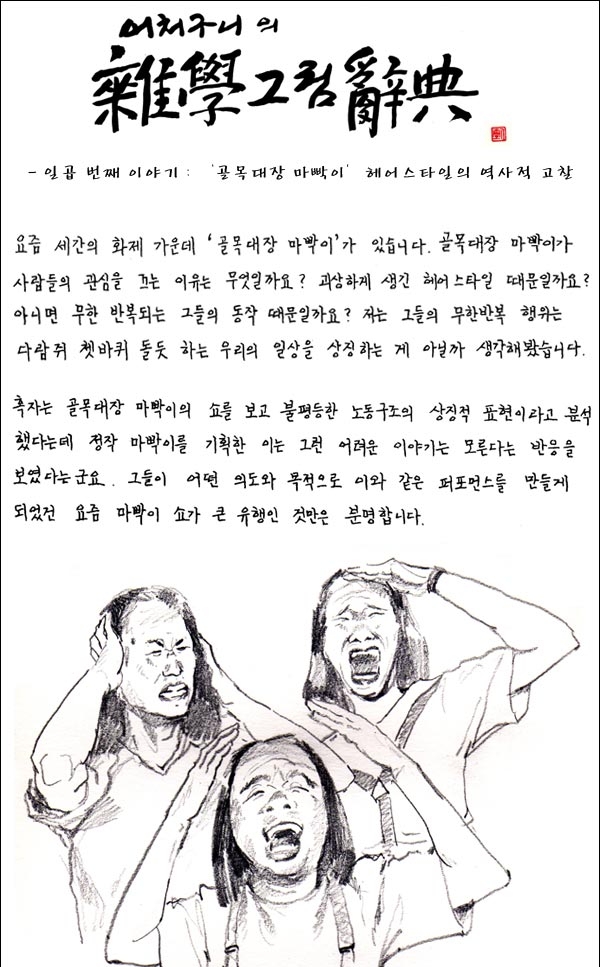 어처구니의
雜學그림辭典
- 일곱 번째 이야기 : '골목대장 마빡이' 헤어스타일의 역사적 고찰
요즘 세간의 화제 가운데 '골목대장 마빡이'가 있습니다. 골목대장 마빡이가
사람들의 관심을 끄는 이유는 무엇일까요? 괴상하게 생긴 헤어스타일 때문일까요?
아니면 무한 반복되는 그들의 동작 때문일까요? 저는 그들의 무한반복 행위는
다람쥐 쳇바퀴 돌듯 하는 우리의 일상을 상징하는 게 아닐까 생각해봤습니다.
혹자는 골목대장 마빡이의 쇼를 보고 불평등한 노동구조의 상징적 표현이라고 분석
했다는데 정작 마빡이를 기획한 이는 그런 어려운 이야기는 모른다는 반응을
보였다는군요. 그들이 어떤 의도와 목적으로 이와 같은 퍼포먼스를 만들게
되었건 요즘 마빡이 쇼가 큰 유행인 것만은 분명합니다.